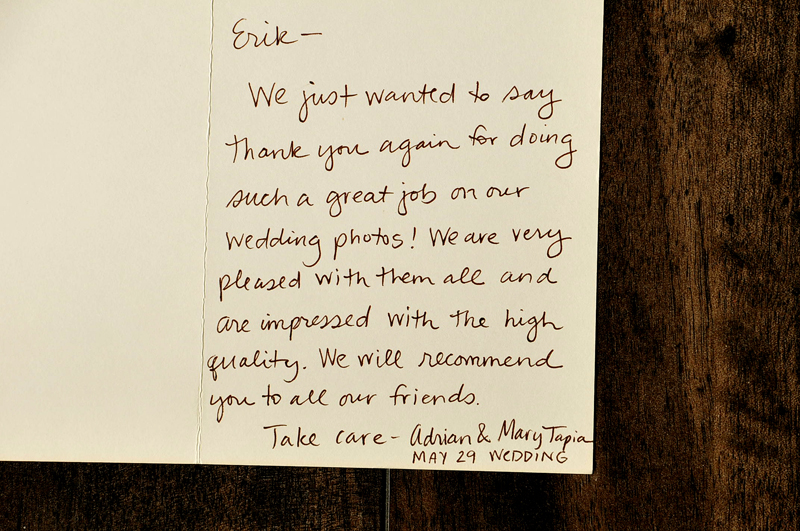 Erik—
We just wanted to say
thank you again for doing
such a great job on our
wedding photos! We are very
pleased with them all and
are impressed with the high
quality. We will recommend
you to all our friends.
Take care - Adrian & Mary Tapia
MAY 29 WEDDING